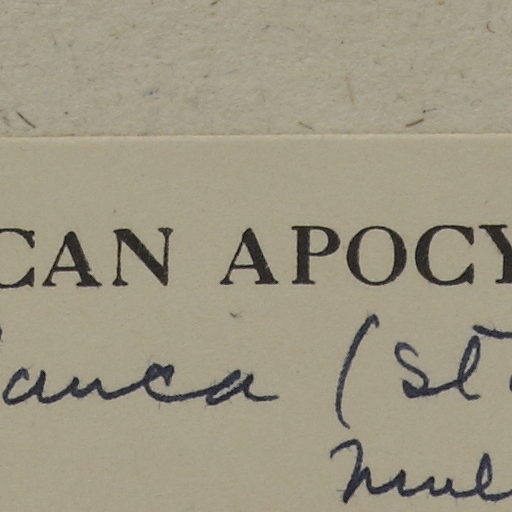 CAN APOCY
auca (St
Muel